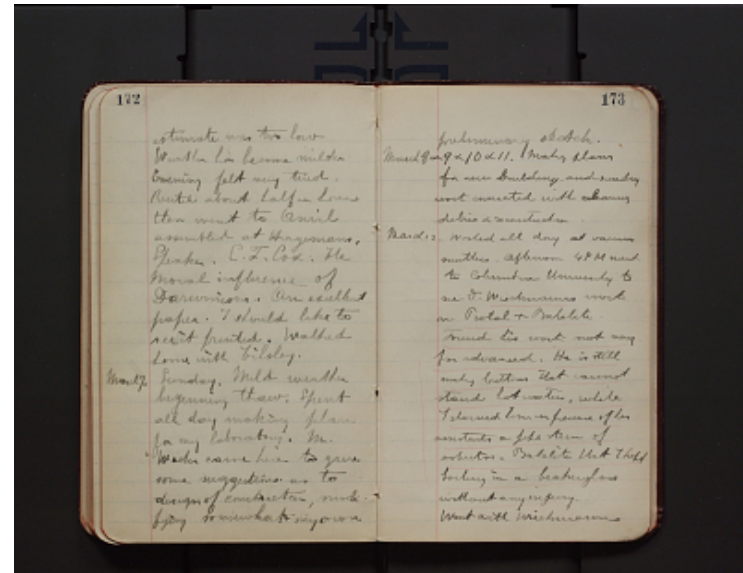 172
estimate was too low
Weather has become milder
Evening felt very tired.
Rested about half an hour
then went to Anvil
assembled at Hagemans.
Speaker. C.F. Cox. The
Moral influence of
Darwinism. An excellent
paper. I should like to
see it printed. Walked
home with
March 7. Sunday. Mild weather
beginning thaw. Spent
all day making plans
for my laboratory. Mr.
came here to give
some suggestions as to
design of construction, modi-
fying somewhat my own
173
preliminary sketch.
March 9 & 10 & 11. Making plans
for new building, and
work connected with
debris &
March 12. Worked all day at various
matters. Afternoon 4 PM went
to Columbia University to
see work
on & Bakelite
Found his work not very
far advanced. He is still
making buttons that cannot
stand hot water, while
I showed him in presence of his
assistants a
Bakelite that I kept
boiling in a
without any injury.
Went with